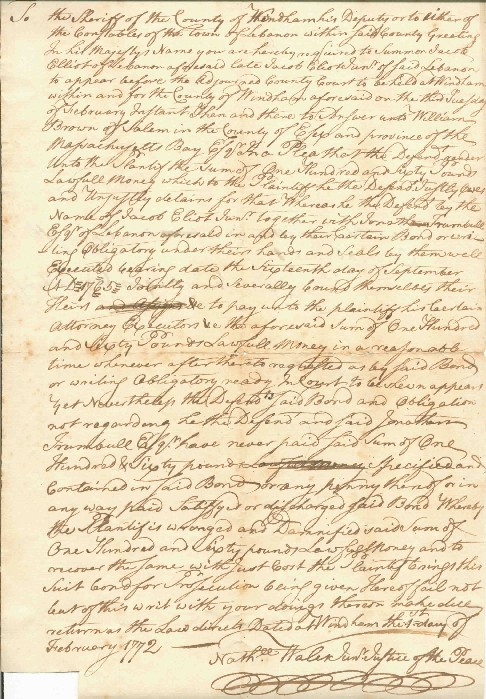 To the Sheriff of the County of Windham his Deputy or to either of
the Constables of the Town of Lebanon within said County Greeting
In his Majestys Name you are hereby required to Summon Jacob
Elliot of Lebanon aforesaid late Jacob Eliot Junr. of said Lebanon
to appear before the Adjourned County Court to be held at Windham
within and for the County of Windham aforesaid on the third Tuesday
of February Instant Then and there to Answer unto William
Brown of Salem in the County of Essex and province of the
Massachusetts Bay Esqr. In a Plea that the Defendt render
Unto the Plantif the Sum of One Hundred and Sixty Pounds
Lawfull Money which to the Plaintif he the Defend Justly owes
and Unjustly detains for that Whereas he the Defend by the
Name of Jacob Eliot Junr. together with Jonathan Trumbull
Esqr of Lebanon aforesaid in and by their Certain Bond or wri=
ting Obligatory under their hands and Seals by them well
Executed bearing date the Sixteenth day of September
AD 1765 Jointly and Severally bound themselves their
Heirs &c to pay unto the plaintif his Certain
Attorney Executors &c the aforesaid Sum of One Hundred
and Sixty Pounds Lawfull Money in a reasonable
time whenever after thereto requested as by said Bond
or writing Obligatory ready in Court to be shewn appears
Yet Nevertheless the Defendt said Bond and Obligation
not regarding he the Defend and said Jonathan
Trumbull Esqr. have never paid said Sum of One
Hundred & Sixty pounds Lawfull Money specified and
Contained in said Bond or any penny thereof or in
any way paid Satisfyed or discharged said Bond Whereby
the Plantif is wronged and Damnified said Sum of
One Hundred and Sixty pounds Lawfull Money and to
recover the Same with Just Cost the Plaintif brings this
Suit Bond for Prosecution being given Hereof fail not
but of this writ with your doings thereon make due
return as the Law directs Dated at Windham the 1st day of
February 1772
Nathll. Wales Junr Justice of the Peace